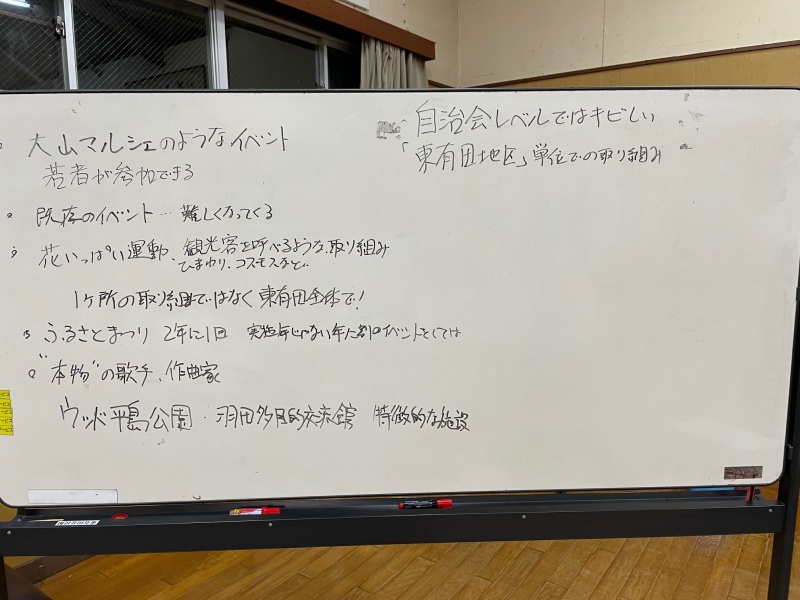 大山マルシェのようなイベント
若者が参加できる
既存のイベント…難しくなってくる
花いっぱい運動、観光客を呼べるような取り組み
ひまわり、コスモスなど
1ヶ所の取り組みではなく東有田全体で!
ふるさとまつり 2年に1回 実施年じゃない年に別のイベントとしては
"本物"の歌手、作曲家
ウッド平島公園・羽田多目的交流館 特徴的な施設
自治会レベルではキビしい
「東有田地区」単位での取り組み